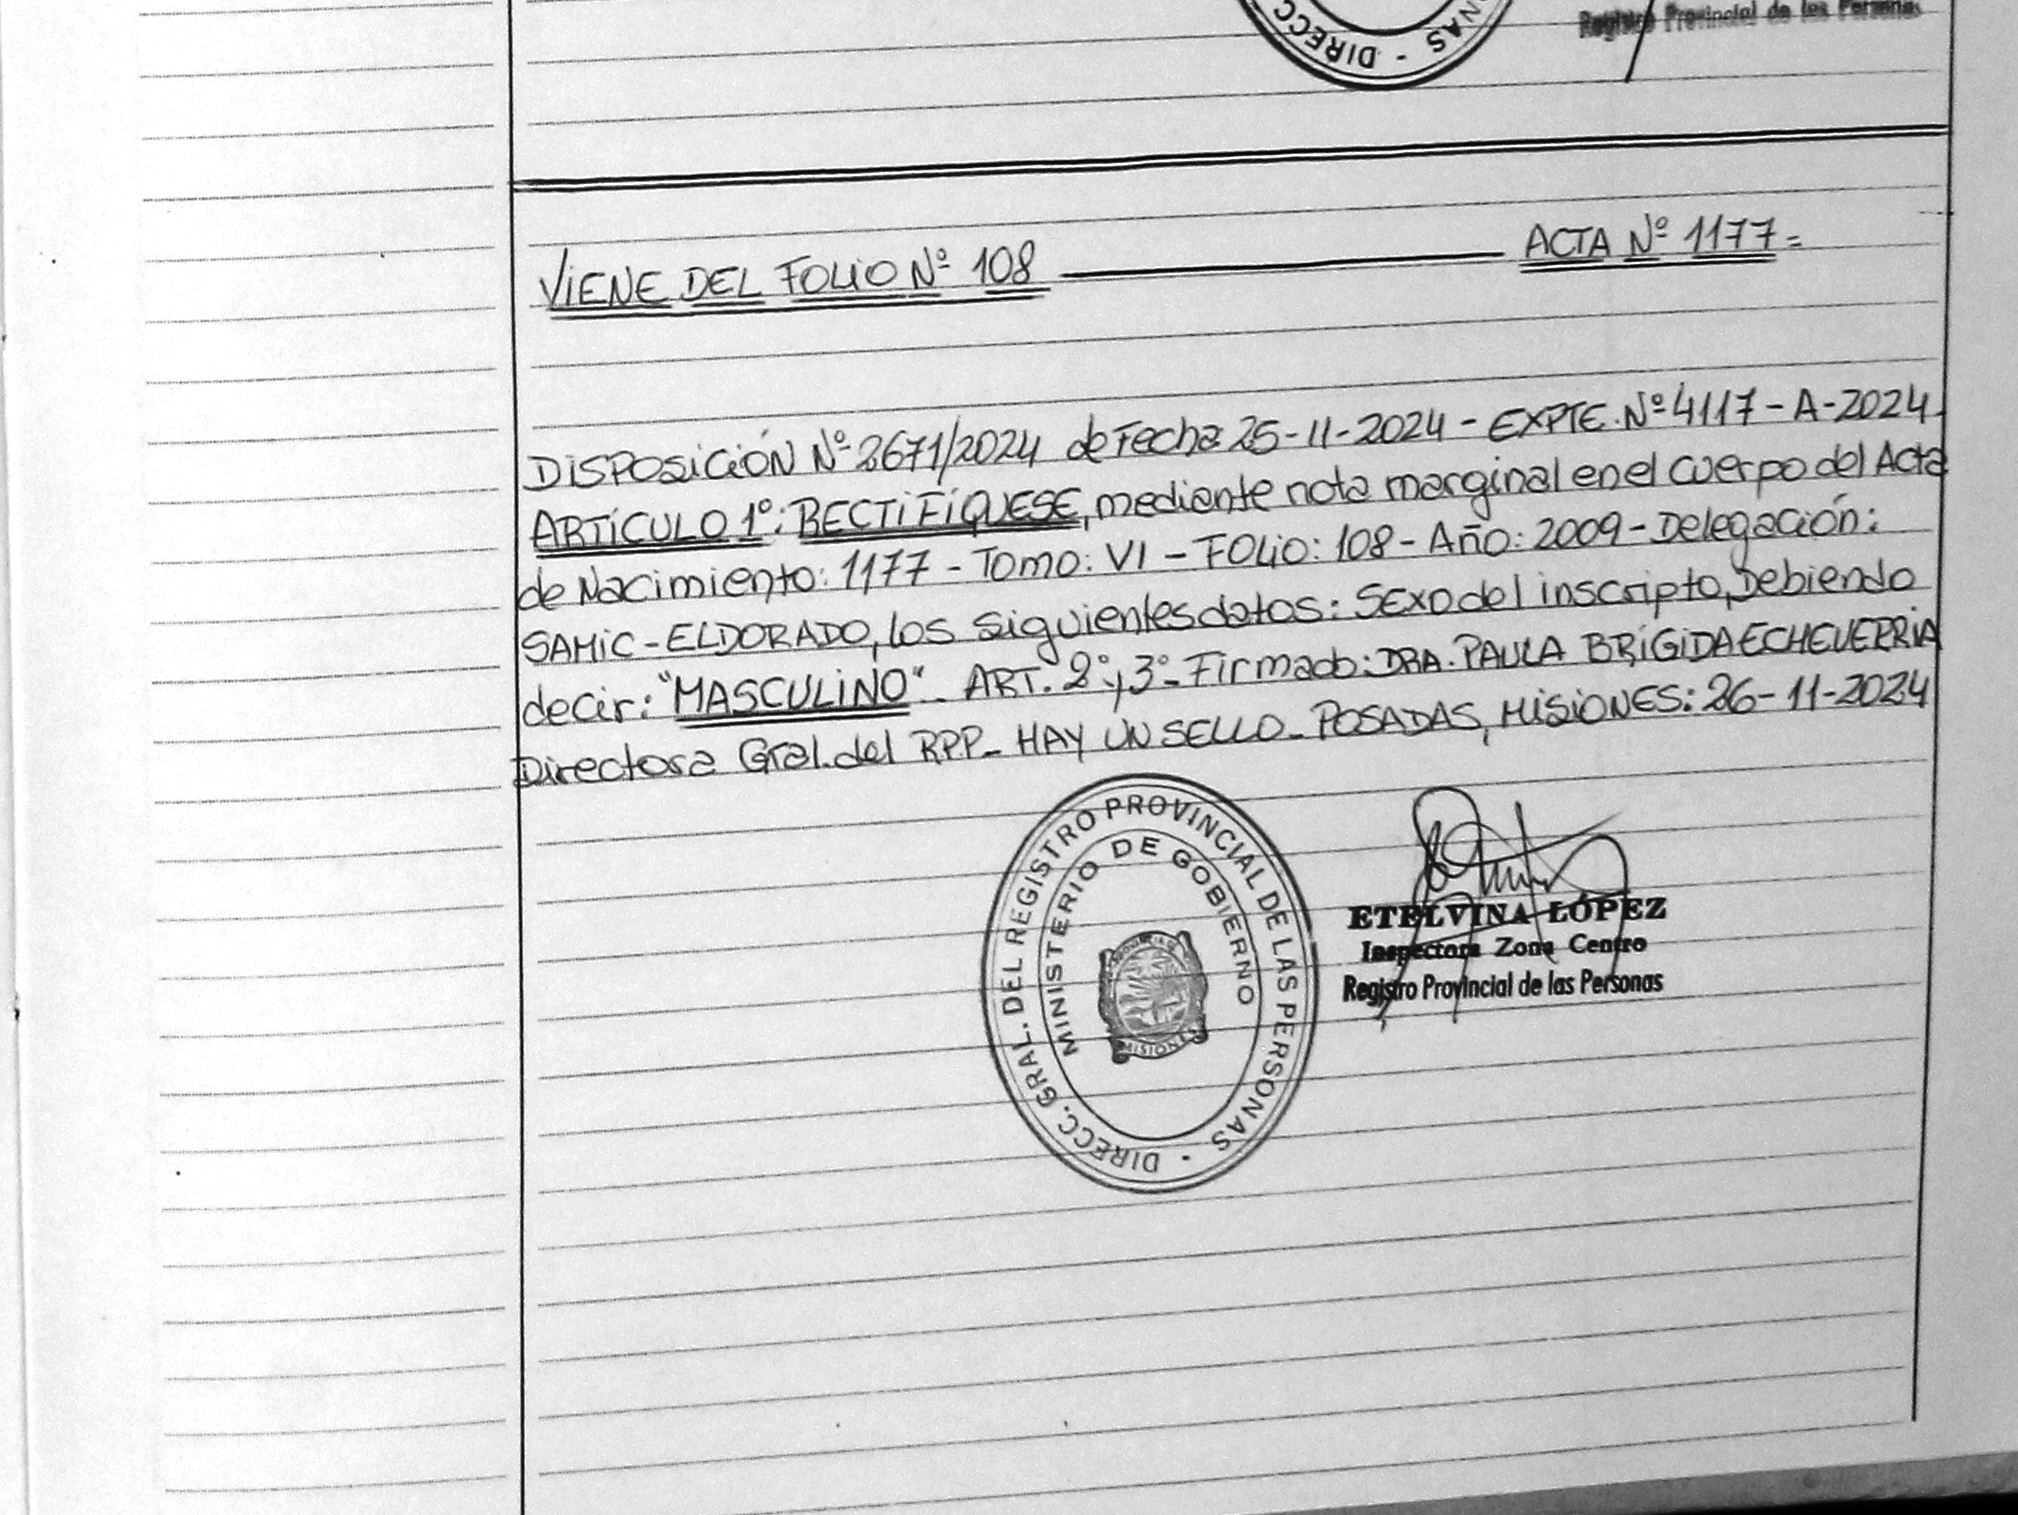 DIRECC
NAS -
Registro Provincial de las Personas
VIENE DEL FOLIO Nº 108 ACTA Nº 1177=
DISPOSICIÓN Nº 2671/2024 de Fecha 25-11-2024 - EXPTE. Nº 4117 - A - 2024
ARTÍCULO 1º: RECTIFÍQUESE, mediante nota marginal en el cuerpo del Acta
de Nacimiento: 1177 - Tomo: VI - FOLIO: 108 - Año: 2009 - Delegación:
SAMIC - ELDORADO, los siguientes datos: SEXO del inscripto, Debiendo
decir: "MASCULINO" ART. 2º y 3º - Firmado: DRA. PAULA BRÍGIDA ECHEVERRIA
Directora Gral. del RPP - HAY UN SELLO - POSADAS, MISIONES: 26 - 11 - 2024
DIRECC. GRAL. DEL REGISTRO PROVINCIAL DE LAS PERSONAS -
MINISTERIO DE GOBIERNO
PROVINCIA DE
MISIONES
ETELVINA LÓPEZ
Inspectora Zona Centro
Registro Provincial de las Personas